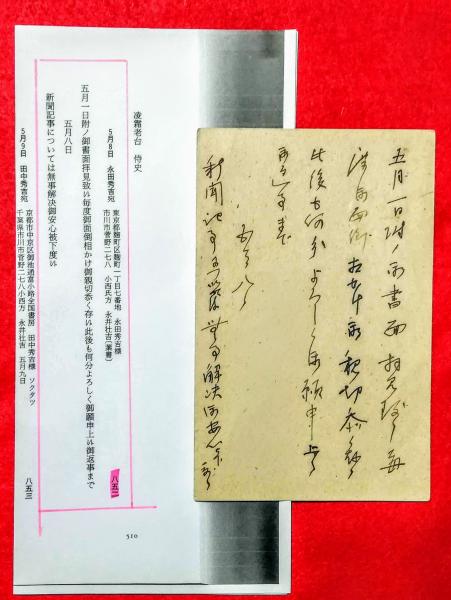 五月一日附ノ御書面拝見致い毎
度御面倒相かけ御親切忝く存い
此後も何分よろしく御願申上い
御返事まで
五月八日
新聞記事については無事解決御安心被下度い
凌霜老台　侍史
5月8日　永田秀吉宛
東京都麹町区麹町一丁目七番地　永田秀吉様
市川市菅野二七八　小西氏方　永井壮吉（葉書）
八五二
五月一日附ノ御書面拝見致い毎度御面倒相かけ御親切忝く存い此後も何分よろしく御願申上い御返事まで
五月八日
新聞記事については無事解決御安心被下度い
5月9日　田中秀吉宛
京都市中京区御池通富小路全国書房　田中秀吉様　ソクタツ
千葉県市川市菅野二七八小西方　永井壮吉　五月九日
八五三
510